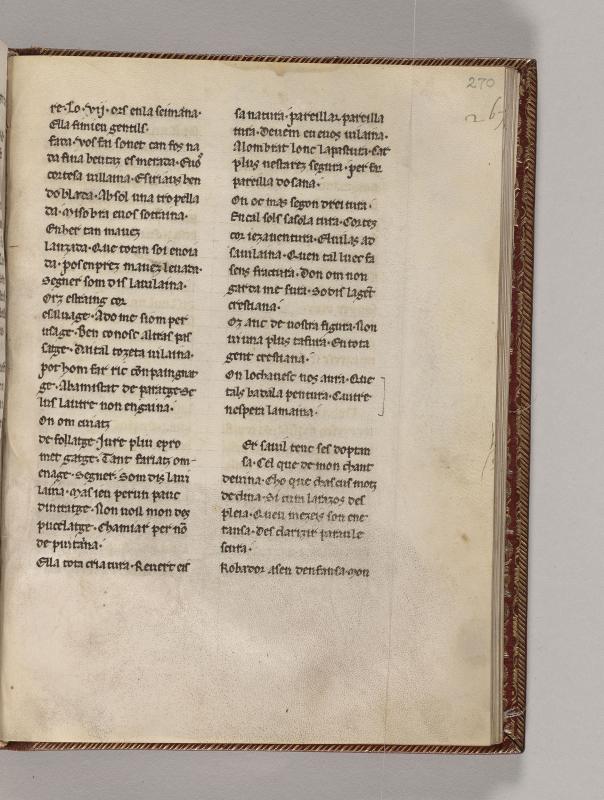 270
267
re·Lo·vij·ors enla seimana·
Ella fimien gentils·
fada·Vos fei sonet can fos na
da fina beutaz esmerada·Euos
cortesa uillaina·Esiriaus ben
doblada·Ab sol una tropella
da·Miso bra euos sotraina·
Enher tan mauez
lauzada·Que totan soi enoia
da·pos enprez mauez leuada·
Segner som dis lauilaina·
Orz estraing cor
esaluage·Ado me siom per
usage·Ben conosc altras pas
sage·Autal tozeta uilaina·
pot hom far ric conpaingnat
ge·Abamistat de paratge Se
lus lautre non enguina·
On om cuiatz
de follatge Iure pliu epro
met gatge·Tant fariaz om
enage·Segner·Som dis laui
laina·Mas ieu perun pauc
dintratge·Non uoil mon des
pucelatge·Chamiar per nō
de puntana·
Ella tota criatura·Reuert ens
sa natura·pareillar pareilla
tura·Deuem eu euos uilaina·
Alombrat lonc lapastura·Car
plus nestarez segura·per far
pareilla dosana·
On oc mas segon dreitura·
Encal fols sasola tura·Cortes
cor iezauentura·Eluilas ab
sauilaina·Quen tal luec fa
sens fraitura·Don om non
garda me sura·So dis lagēt
crestiana·
Oz anc de uostra figura·Non
ui una plus tafura·En tota
gent crestiana·
On lochauesc nos aura·Que
tals badala pentura·Cautre
nespera lamaina·
Er sauil tenc ses doptan
sa·Cel que de mon chant
deuina·Cho que chascus motz
declina·Si cum larazos des
pleia·Queu mezeis son ene
tansa·Des clarzir paraule
scura·
Robador asen denfansa·Mon